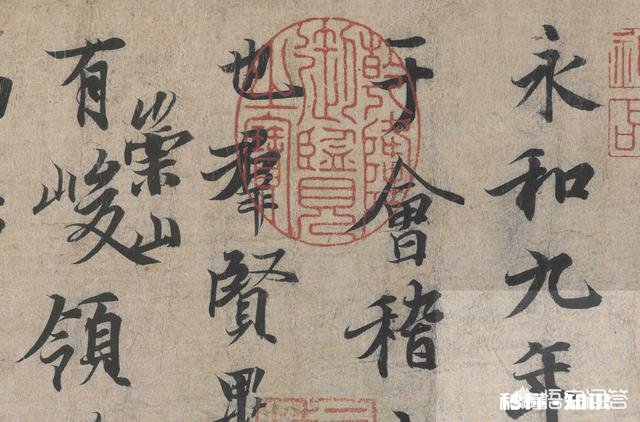 永和九年
于會稽
也羣賢畢
有崇山峻領
乾隆御覽之寶
悟空问答